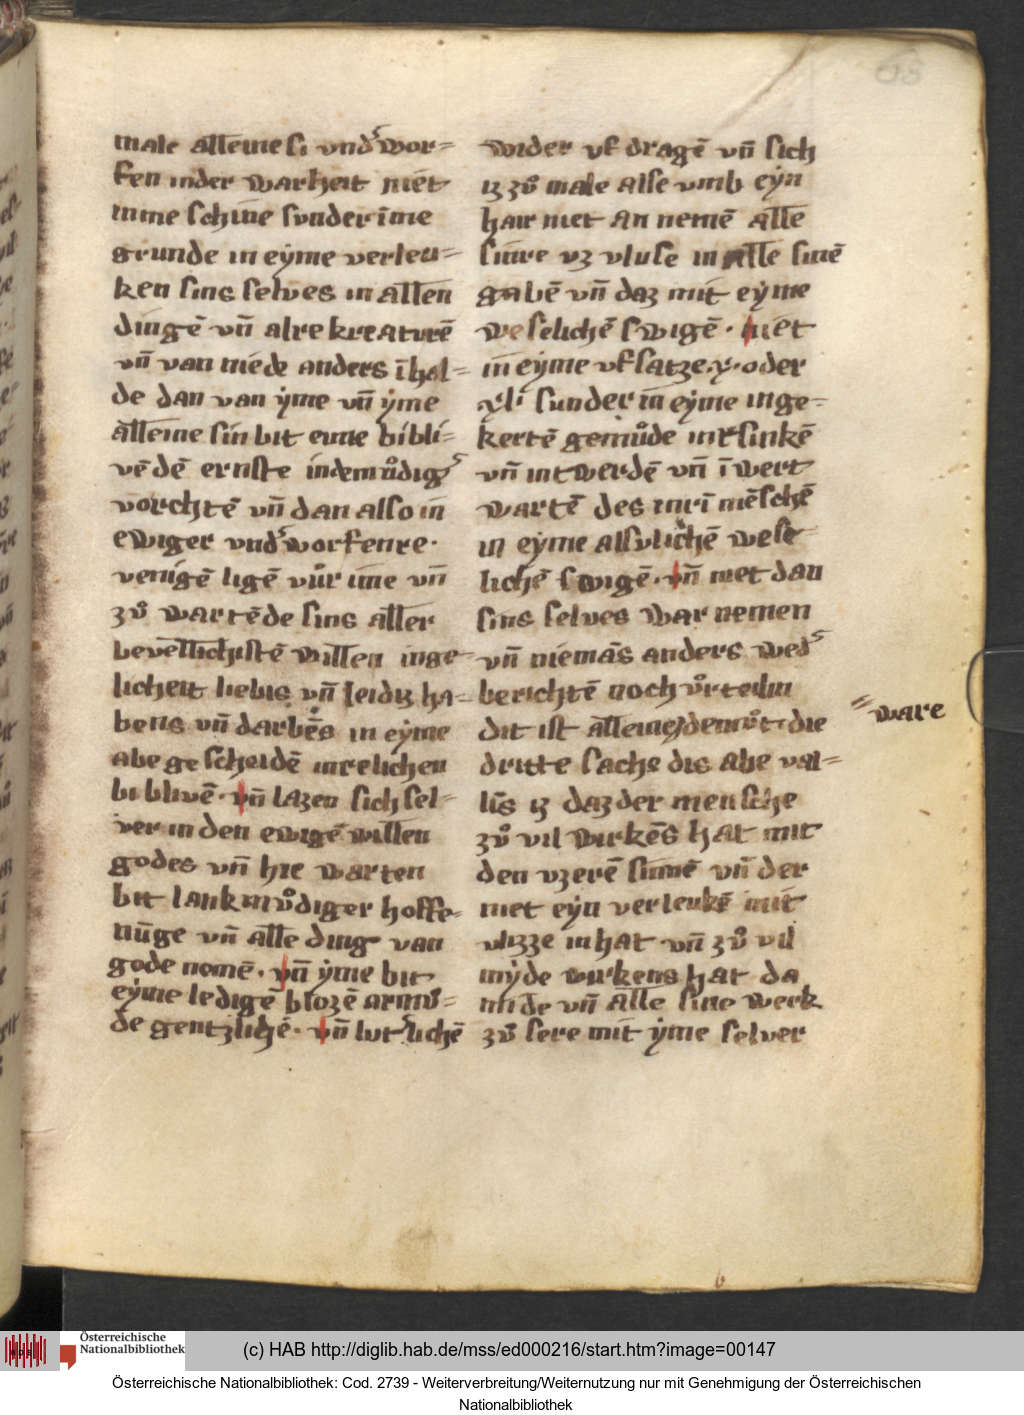 male alleine si vnd͛ wor=
fen inder warheit niet
inme schine sunder īme
grunde in eẏme verleu=
ken sins selves in allen
dingē vn̄ alre kreaturē
vn̄ van niede anders īhal=
de dan van ẏme vn̄ ẏme
alleine sin bit eime bibli=
vēdē ernste indemuͦdig͛
vorchtē vn̄ dan also in
ewiger vnd͛worfenre·
venigē ligē vuͦr ime vn̄
zuͦ wartēde sins aller
bevellichstē willen inge=
licheit liebis vn̄ leidiz ha=
bens vn̄ darbēs in eẏme
abe gescheidē inrelichen
bi blivē· vn̄ lazen sich sel=
ver in den ewigē willen
godes vn̄ hie warten
bit lankmuͦdiger hoffe=
nūge vn̄ alle ding van
gode nomē· vn̄ ẏme bit
eẏme ledigē blozē armuͦ=
de gentzlichē· vn̄ lut͛lichē
wider vf dragē vn̄ sich
iz zuͦ male alse vmb eẏn
hair niet an nemē alle
sinre vz vluse in alle sinē
gabē vn̄ daz mit eẏme
weselichē swigē· niet
in eẏme vf satze·x·oder
xli sunder in eẏme inge=
kertē gemuͦde inrsinkē
vn̄ intwerdē vn̄ īwert
wartē des inrī mēschē
in eẏme alsulichē wese
lichē swigē· vn̄ niet dan
sins selves war nemen
vn̄ niemās anders wed͛
berichtē noch vͦrteilin
dit ist alleine demuͦt· die
dritte sache dis abe val=
līs iz daz der mensche
zuͦ vil wirkēs hat mit
den vzerē sinnē vn̄ der
niet eẏn verleukē mit
vlizze in hat vn̄ zuͦ vil
mẏde wirkens hat da
mide vn̄ alle sine werk
zuͦ sere mit ẏme selver
= ware
(c) HAB http://diglib.hab.de/mss/ed000216/start.htm?image=00147
Österreichische
Nationalbibliothek
Österreichische Nationalbibliothek: Cod. 2739 - Weiterverbreitung/Weiternutzung nur mit Genehmigung der Österreichischen
Nationalbibliothek